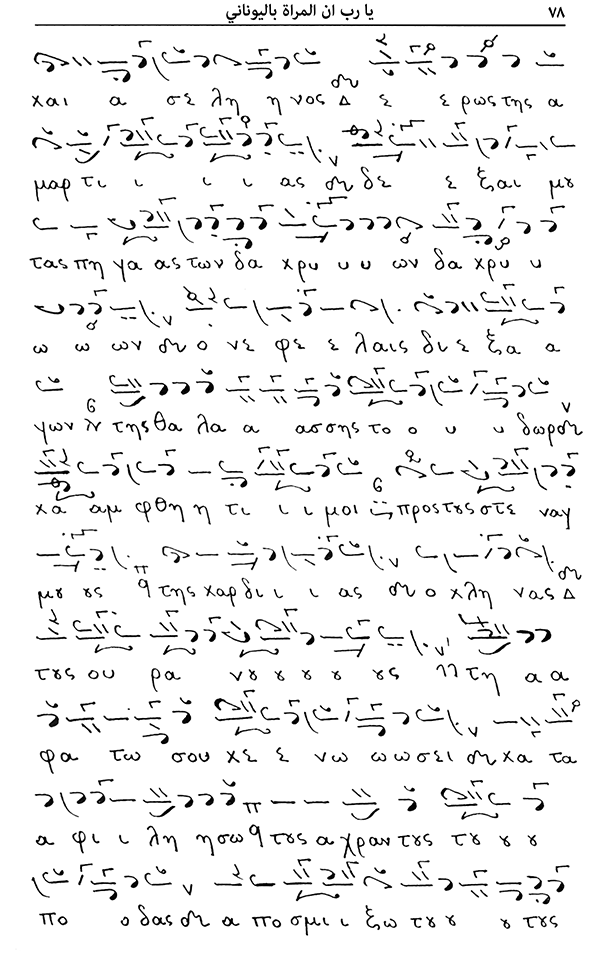 ٧٨ يا رب ان المراة باليوناني
και α σε λη η νος Δ ε ε ρως της α
μαρ τι ι ι ι ας δε ε ξαι μȣ
τας πη γα ας των δα κρυ υ υ ων δα κρυ υ
ω ω ων ο νε φε ε λαις δι ε ξα α
γων της θα λα α ασσης το ο υ υ δωρ
κα αμ φθη η τι ι ι μοι προς τȣς στε ναγ
μȣ ȣς της καρ δι ι ι ας ο κλη νας Δ
τȣς ου ρα νȣ ȣ ȣ ȣ ȣς τη α α
φα τω σου κε ε νω ω ω σει κα τα
α φι ι λη η σω τȣς α κραν τȣς τȣ ȣ ȣ
πο ο δας α πο σμι ι ξω τȣ ȣ ȣ τȣς